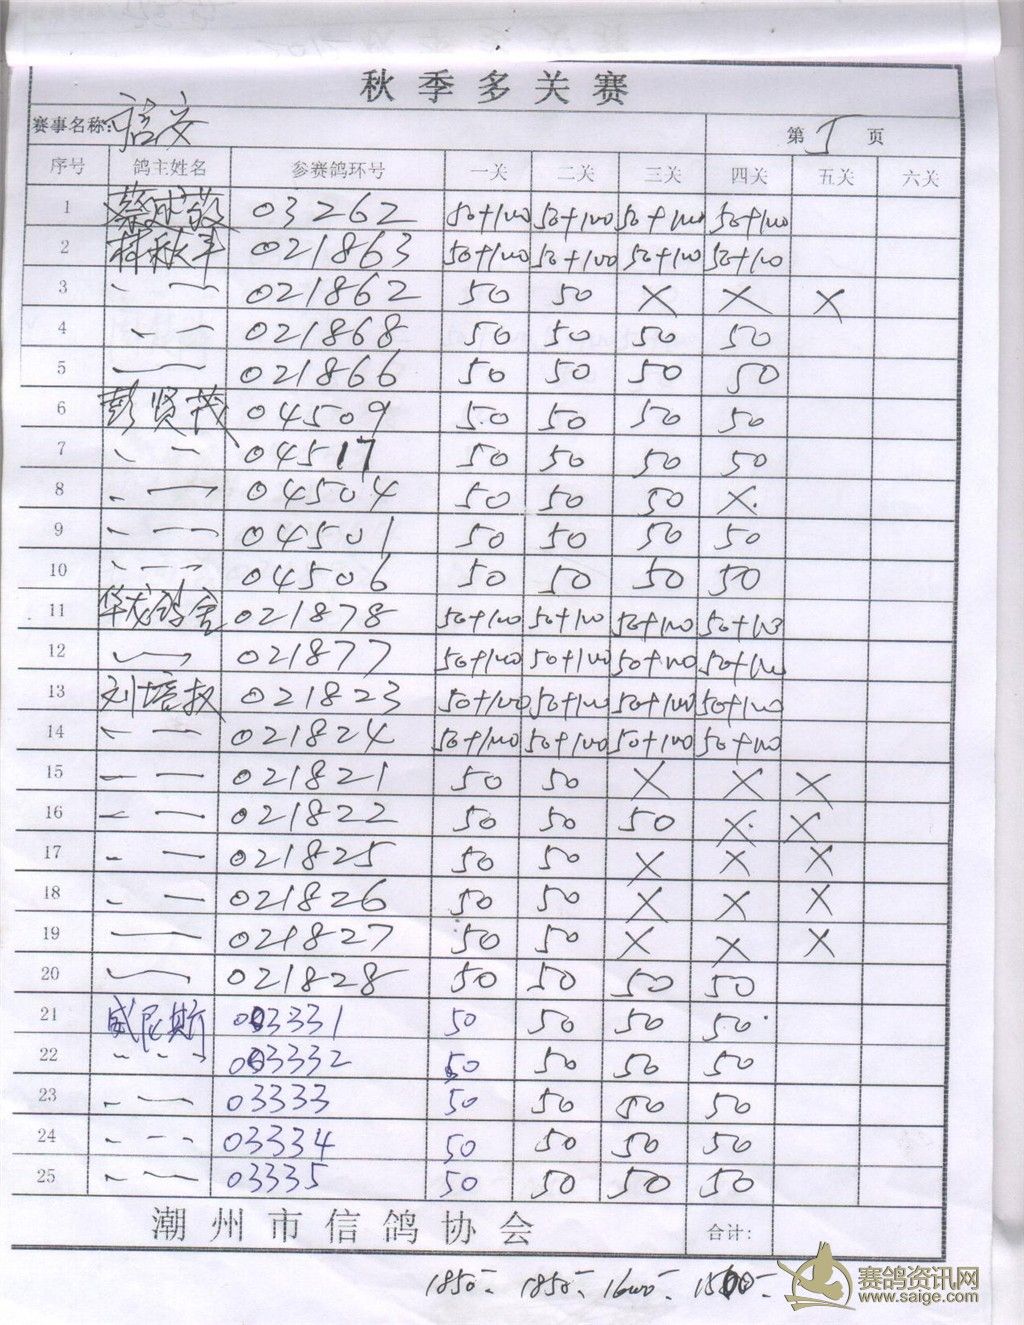 秋季多关赛
赛事名称: 信交 第 1 页
序号 鸽主姓名 参赛鸽环号 一关 二关 三关 四关 五关 六关
1 03262 50+100 50+100 50+100 50+100
2 林秋平 021863 50+100 50+100 50+100 50+100
3 〃 — 021862 50 50 × × ×
4 〃 — 021868 50 50 50 50
5 — 021866 50 50 50 50
6 彭贤茂 04509 50 50 50 50
7 〃 — 04517 50 50 50 50
8 〃 — 04504 50 50 50 ×
9 〃 — 04501 50 50 50 50
10 〃 — 04506 50 50 50 50
11 华龙鸽舍 021878 50+100 50+100 50+100 50+100
12 — 021877 50+100 50+100 50+100 50+100
13 刘培权 021823 50+100 50+100 50+100 50+100
14 — — 021824 50+100 50+100 50+100 50+100
15 — — 021821 50 50 × × ×
16 — — 021822 50 50 50 × ×
17 — — 021825 50 50 × × ×
18 — — 021826 50 50 × × ×
19 — — 021827 50 50 × × ×
20 — 021828 50 50 50 50
21 威尼斯 03331 50 50 50 50
22 〃 — 03332 50 50 50 50
23 — — 03333 50 50 50 50
24 — — 03334 50 50 50 50
25 — — 03335 50 50 50 50
潮州市信鸽协会 合计:
1850— 1850— 1600— 1500—
赛鸽资讯网
www.saige.com